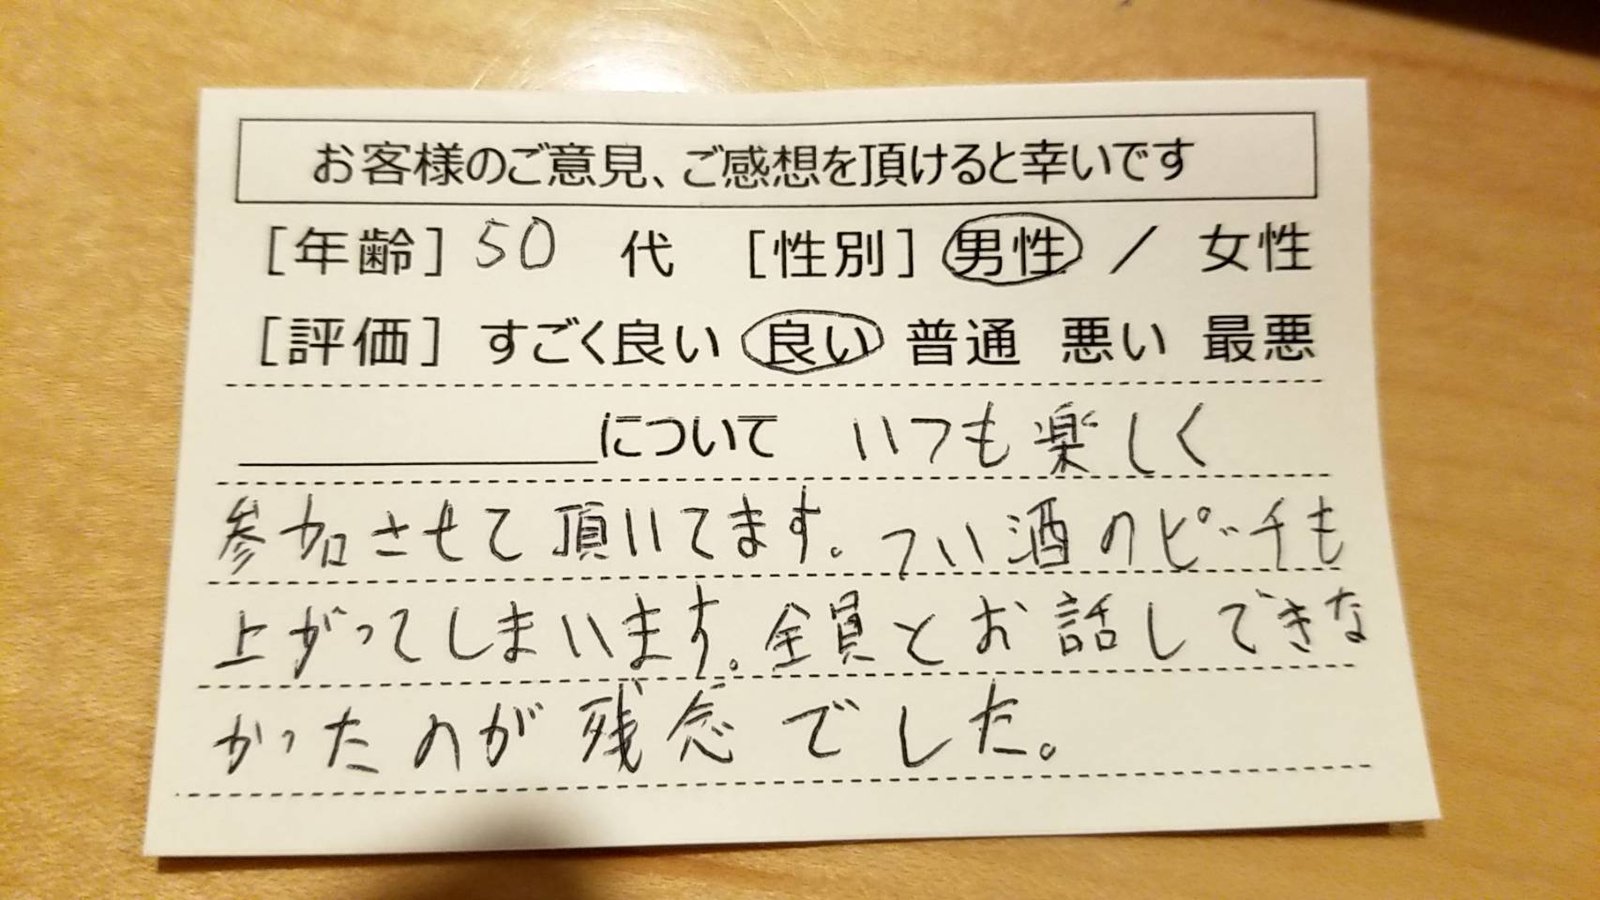 お客様のご意見、ご感想を頂けると幸いです
[年齢] 50 代 [性別] 男性 / 女性
[評価] すごく良い 良い 普通 悪い 最悪
について いつも楽しく
参加させて頂いてます。つい酒のピッチも
上がってしまいます。全員とお話しできな
かったのが残念でした。